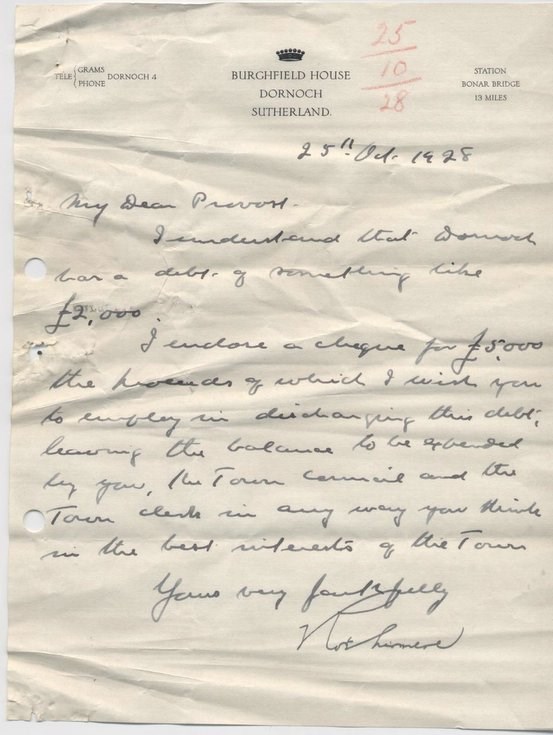 25
10
28
TELE GRAMS PHONE DORNOCH 4
BURGHFIELD HOUSE
DORNOCH
SUTHERLAND.
STATION
BONAR BRIDGE
13 MILES
25th Oct. 1928
My Dear Provost.
I understand that Dornoch
has a debt of something like
£2,000.
I enclose a cheque for £5000
the proceeds of which I wish you
to employ in discharging this debt,
leaving the balance to be expended
by you, the Town Council and the
Town clerk in any way you think
in the best interests of the Town
Yours very faithfully
Rothermere